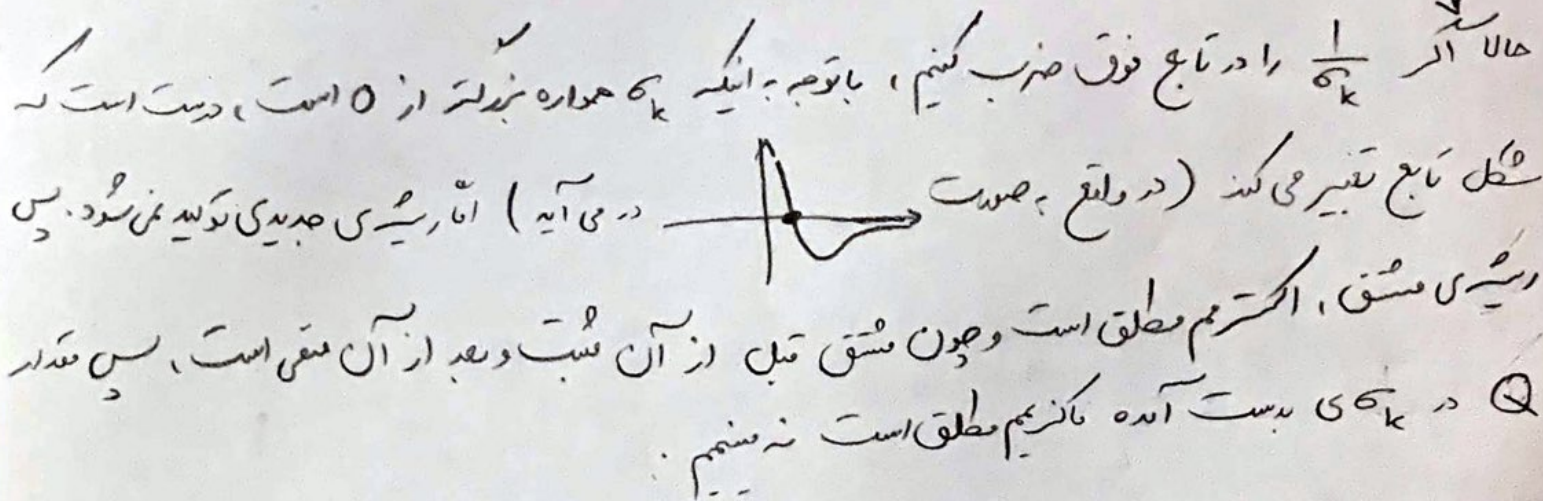 حالا اگر 1/σk را در تابع فوق ضرب کنیم، باتوجه به اینکه σk همواره بزرگتر از 0 است، درست است که
شکل تابع تغییر می کند (در واقع به صورت در می آید) امّا ریشه ی جدیدی تولید نمی شود. پس
ریشه ی مشتق، اکسترمم مطلق است و چون مشتق قبل از آن مثبت و بعد از آن منفی است، پس مقدار
Q در σk ی بدست آمده ماکزیمم مطلق است نه مینیمم.